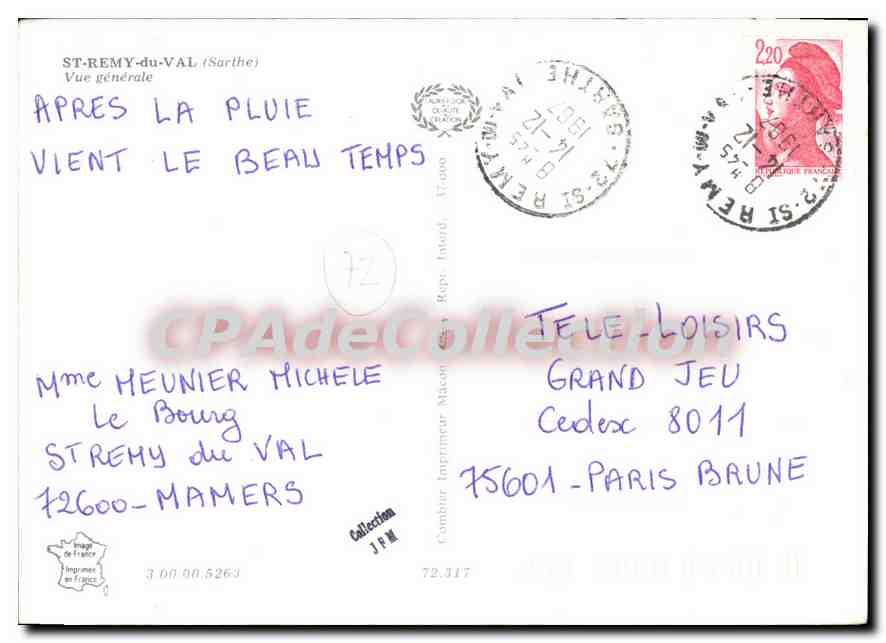 ST-REMY-du-VAL (Sarthe)
Vue générale
APRES LA PLUIE
VIENT LE BEAU TEMPS
72
Mme MEUNIER MICHELE
Le Bourg
ST REMY du VAL
72600-MAMERS
Image
de France
Imprimée
en France
3.00.00.5263
72.317
Collection
JPM
Combier Imprimeur Mâcon Repr. Interd. 37.000
2,20
REPUBLIQUE FRANÇAISE
72-ST REMY-DU-VAL SARTHE
8 H 45
14-12
1987
72-ST REMY-DU-VAL SARTHE
8 H 45
14-12
1987
CPAdeCollection
TELE-LOISIRS
GRAND JEU
Cedex 8011
75601-PARIS BRUNE